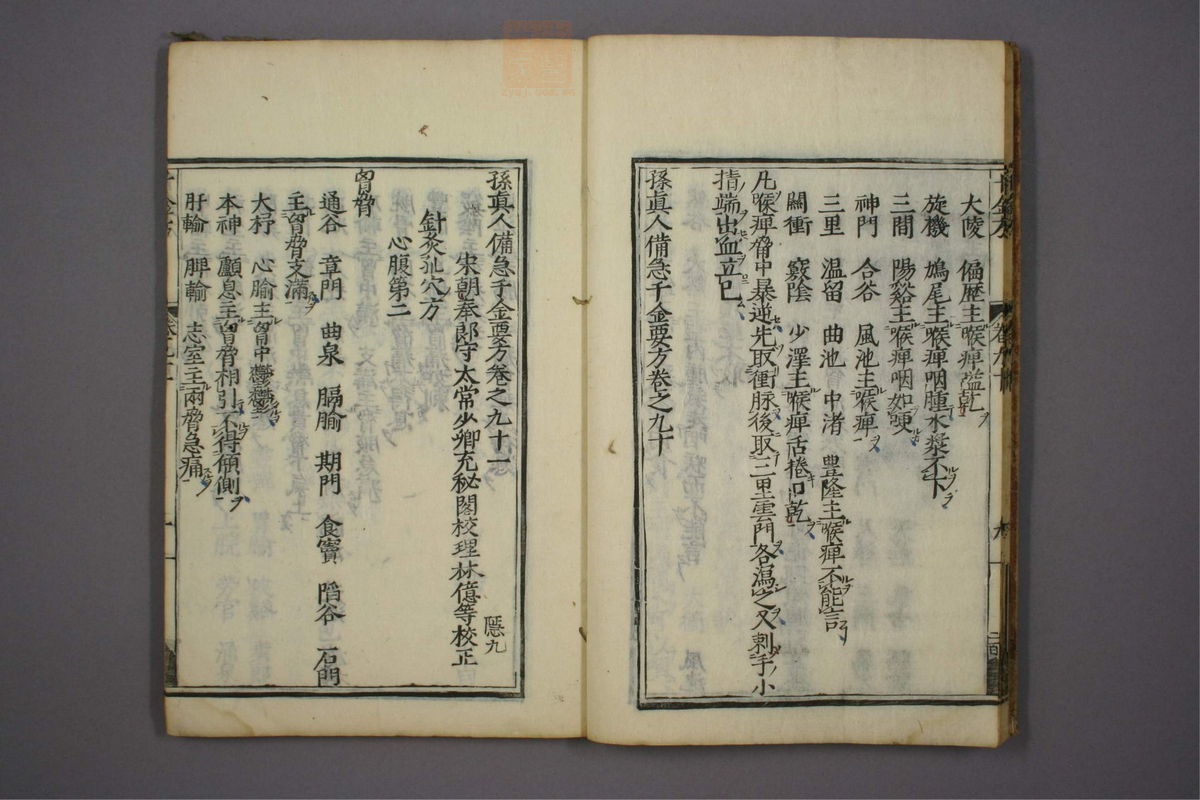 大陵　偏歷主喉痺嗌乾
旋機　鳩尾主喉痺咽腫水漿不下
三間　陽谿主喉痺咽如哽
神門　合谷　風池主喉痺
三里　温留　曲池　中渚　豊隆主喉痺不能言
關衝　竅陰　少澤主喉痺舌捲口乾
凡喉痺脅中暴逆先取衝脉後取三里雲門各瀉之又刺手小
指端出血立已
孫眞人備急千金要方卷之九十
孫眞人備急千金要方卷之九十一
隱九
宋朝奉郎守太常少卿充秘閣校理林億等校正
針灸孔穴方
心腹第二
胷脅
通谷　章門　曲泉　膈腧　期門　食竇　陷谷　石門
主胷脅支滿
大杼　心腧主胷中鬱鬱
本神　顱息主胷脅相引不得傾側
肝輸　脾輸　志室主兩脅急痛